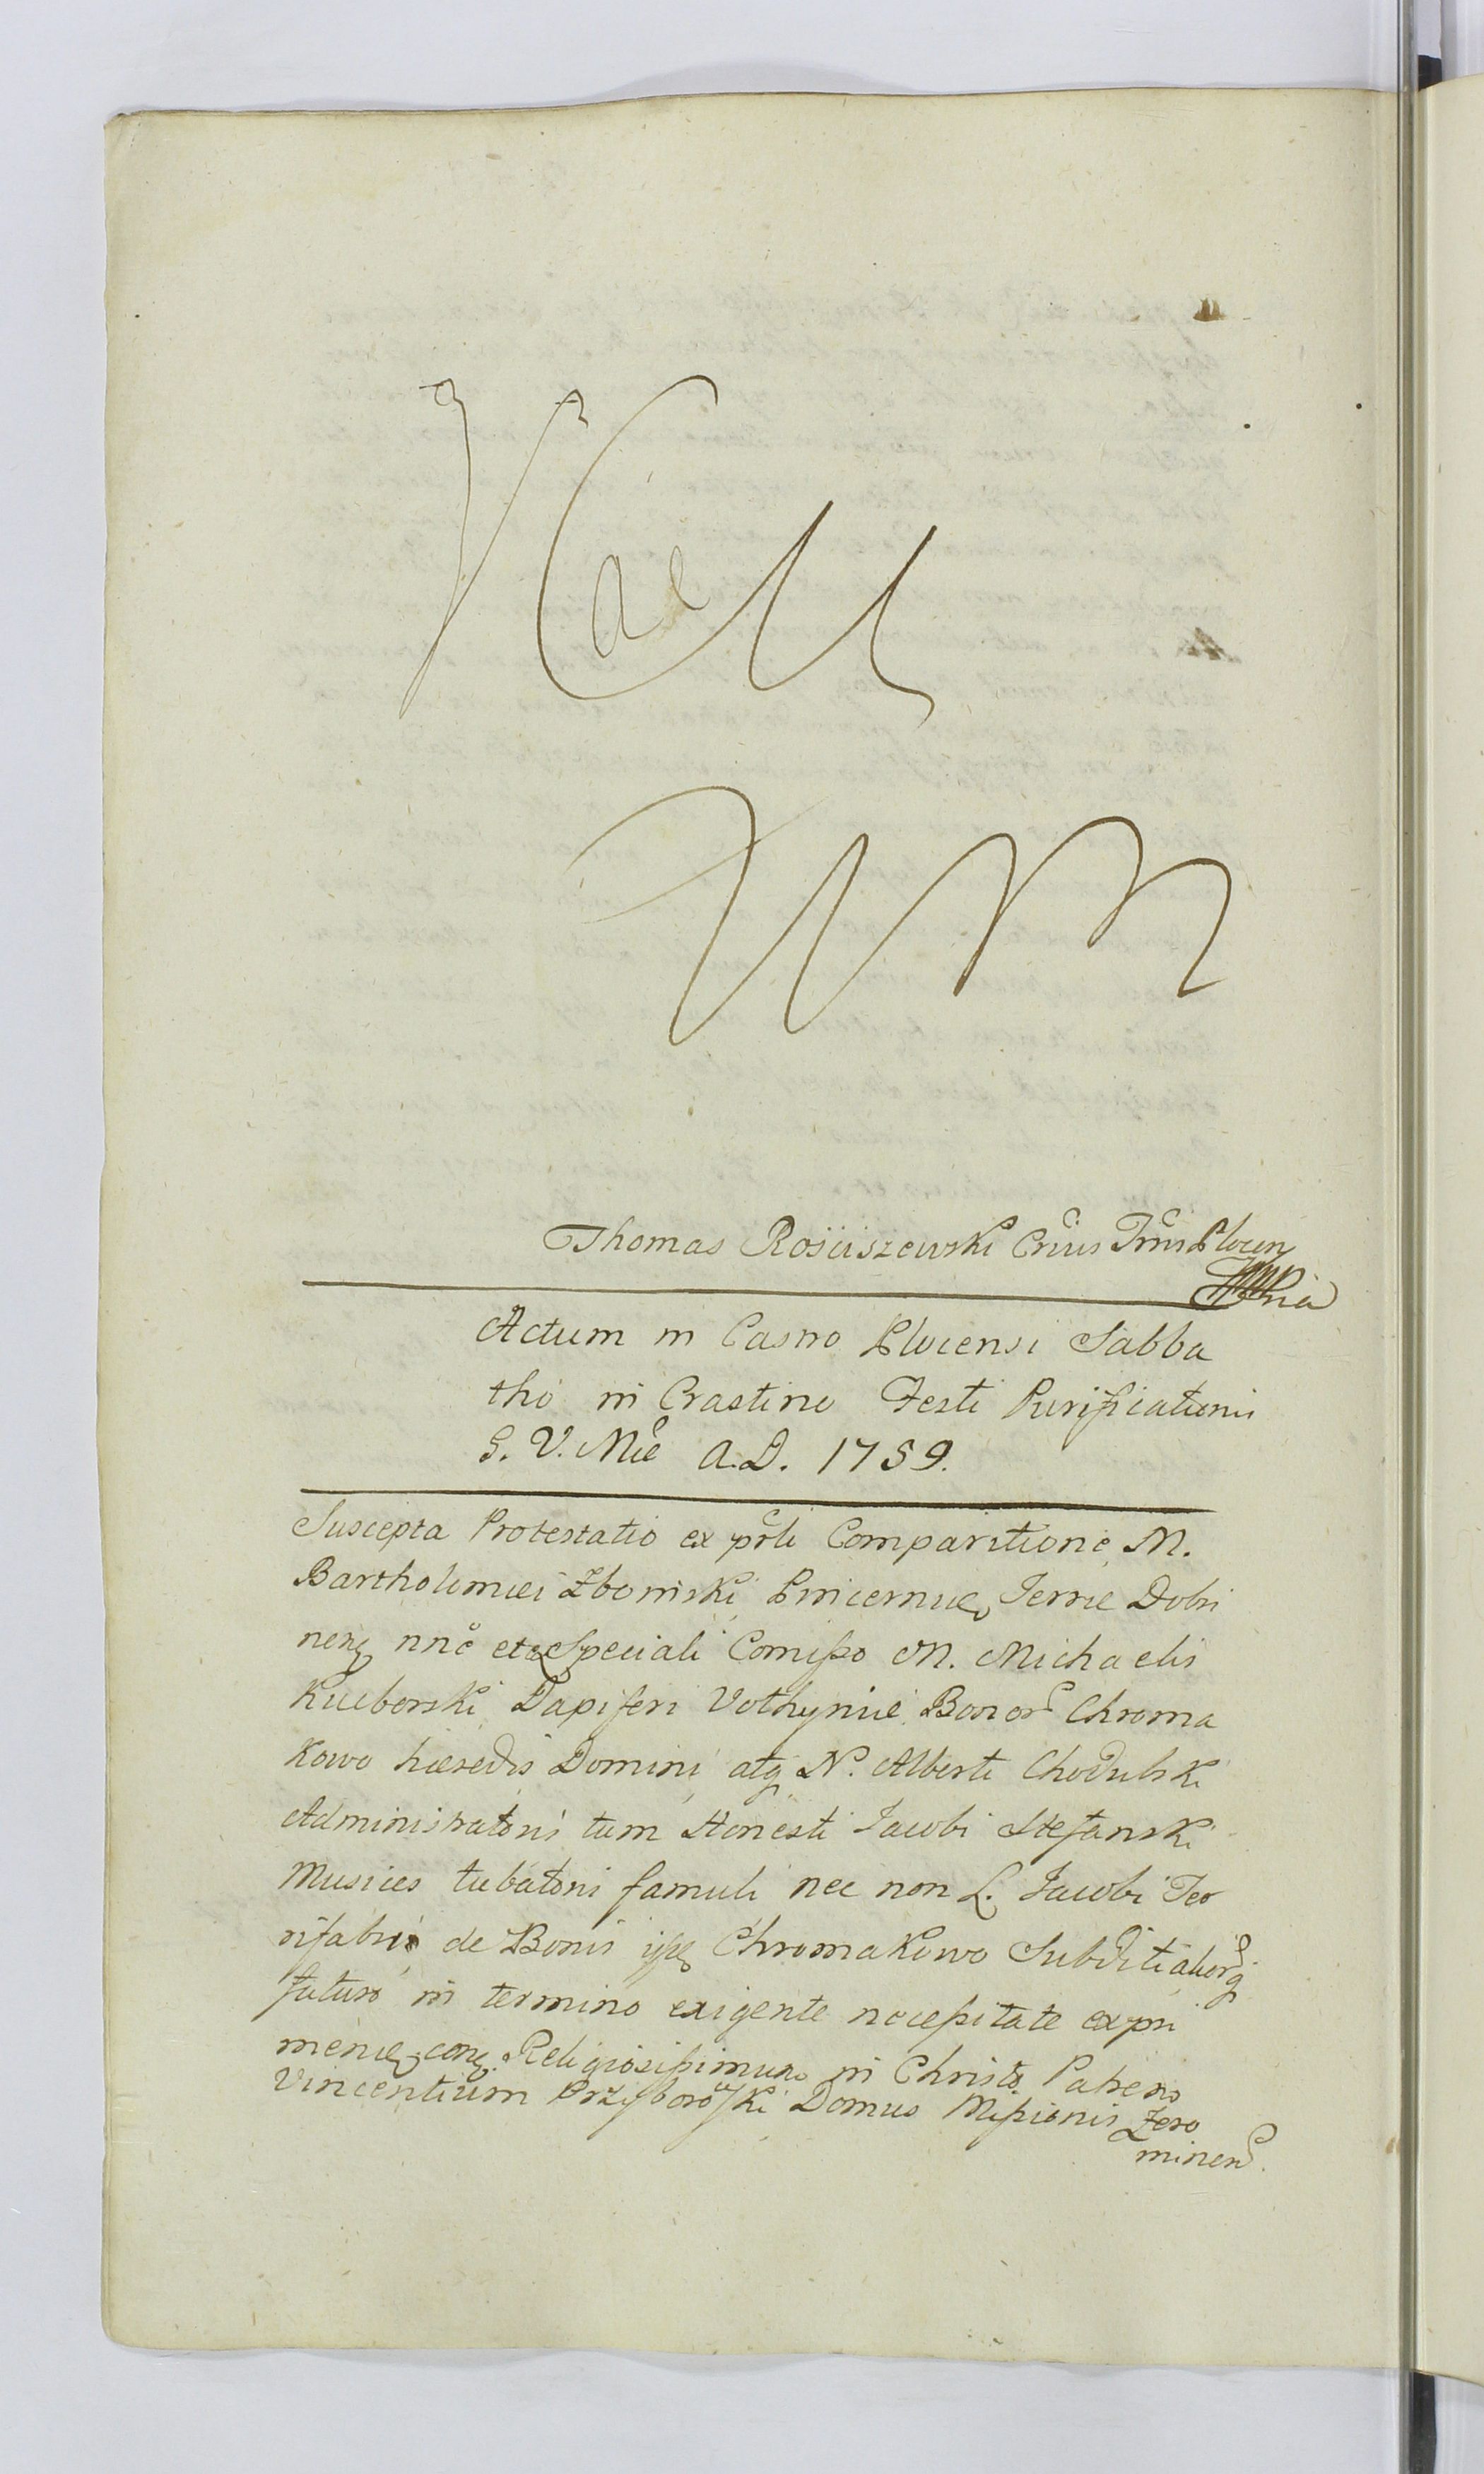 Vacu
um
Thomas Rościszewski Crius Trris Plocen
mpria
Actum in Castro Plocensi Sabba
tho in Crastino Festi Purificationis
S. V. Mae A.D. 1759.
Suscepta Protestatio ex prli Comparitione M.
Bartholomaei Zboinski Pincernae Terrae Dobri
nens nnē et Speciali Comißo M. Michaelis
Kucborski Dapiferi Volhyniae Bonor Chroma
Kowo haeredis Domini atq N. Alberti Chodulski
Administratoris tum Honesti Jacobi Stefanski
Musices tubatoris famuli nec non L. Jacobi Fer
rifabri de Bonis ijs Chromakowo Subditi aliorq
futuro in termino exigente necessitate expri
mend con Religiosißimum in Christo Patrem
Vincentium Przyborowski Domus Mißionis Zero
minen.